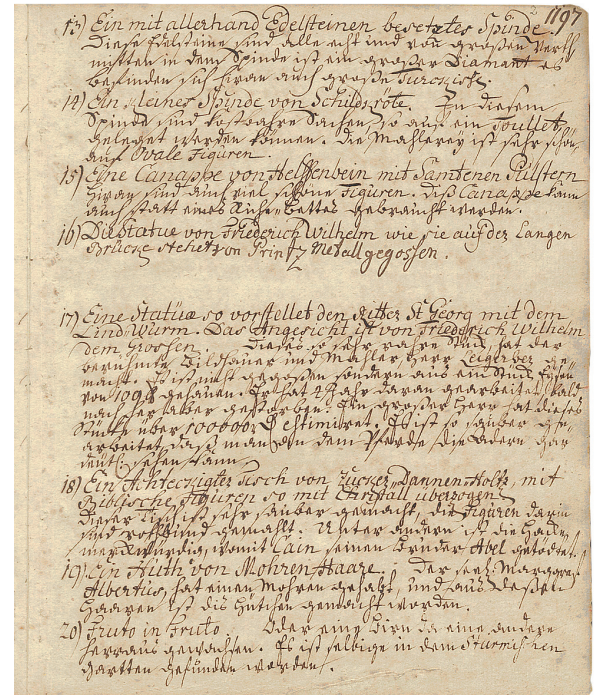 1197
13) Ein mit allerhand Edelsteinen besetztes Spinde.
Diese Edelsteine sind alle echt und von großen Werth
mitten in dem Spinde ist ein großer Diamant es
befinden sich hieran auch große Turckisse.
14) Ein kleines Spinde von Schildkröte. In diesem
Spinde sind kostbahre Sachen, so auf ein Toullet
geleget werden können. Die Mahlerey ist sehr schön
auf Ovale Figuren.
15) Eine Canappe von Helffenbein mit Samtenen Pülstern
hieran sind auch viel schöne Figuren. Diß Canappe kann
auch statt eines Ruhe Bettes gebraucht werden.
16) Die Statue von Friederich Wilhelm wie sie auf der Langen
Brücke stehet von Printz Metall gegossen.
17) Eine Statüa so vorstellet den Ritter St Georg mit dem
Lind Wurm. Das Angesicht ist von Friederich Wilhelm
dem Grossen. Dieses so sehr rahre Stück hat der
berühmte Bildhauer und Mahler Herr Leigerber ge
macht. Es ist nicht gegossen sondern aus ein Stück Eisen
von 109 gehauen. Er hat Jahr daran gearbeitet, bald
nach her aber gestorben. Ein großer Herr hat dieses
Stück über 100000 estimiret. Es ist so sauber ge
arbeitet, daß man an dem Pferde die Adern gar
deutl. sehen kann.
18) Ein Achteckigter Tisch von Zucker Dannen Holtz, mit
Biblische Figuren so mit Christall überzogen.
Dieser Tisch ist sehr sauber gemacht, die Figuren darin
sind gemahlt. Unter andern ist die
merckwürdig, womit Cain seinen Bruder Abel getödtet.
19) Ein Huth von Mohren Haare. Der seel. Marggraf
Albertus, hat einen Mohren gehabt, und aus deßen
Haaren ist dis Hütchen gemacht worden.
20) Fruto in Fruto. Oder eine Birn da eine andere
herraus gewachsen. Es ist selbige in dem Sturmischen
Gartten gefunden worden.